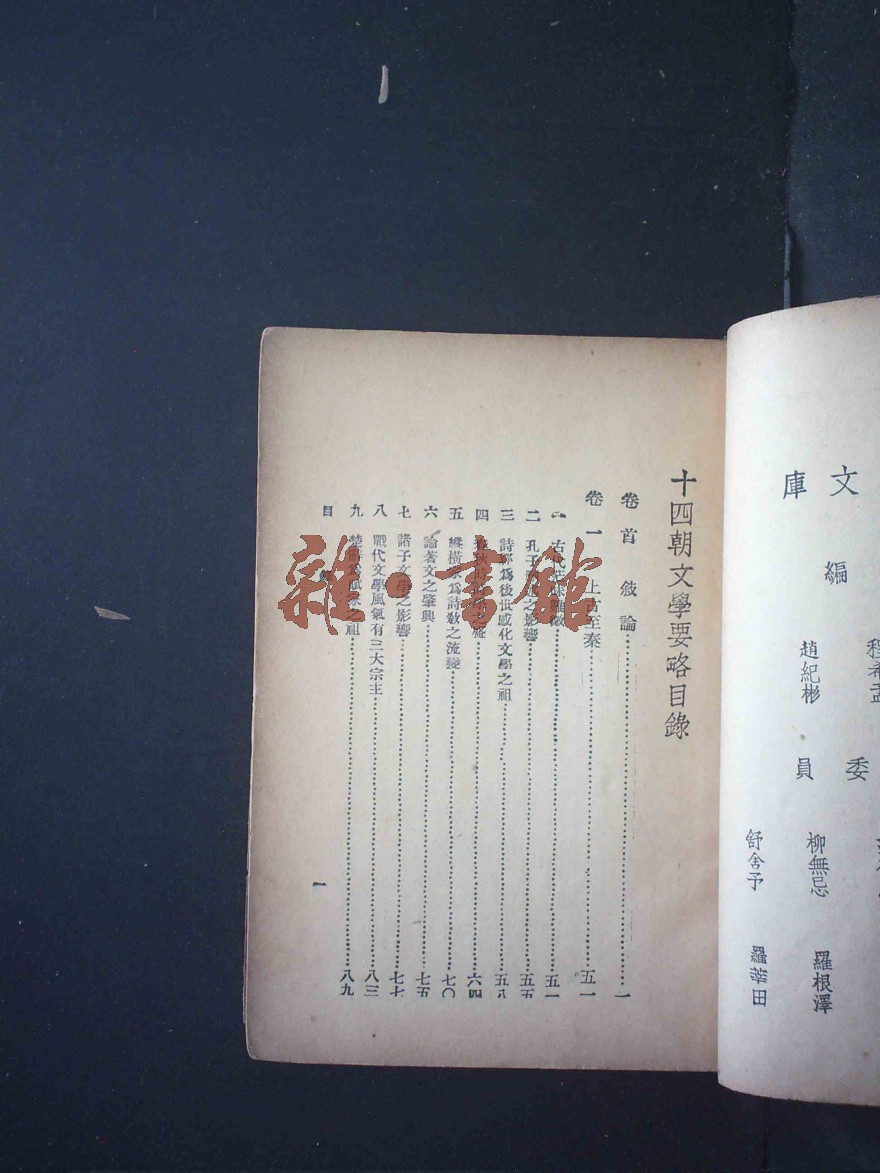 文
庫
編
程希孟
趙紀彬
委
員
柳無忌
羅根澤
舒舍予
羅莘田
十四朝文學要略目錄
卷首 敍論 一
卷一 上古至秦 五一
一 古代 五一
二 孔子 之影響 五五
三 詩 爲後世感化文學之祖 五八
四 六四
五 縱橫家爲詩敎之流變 七〇
六 論著文之肇興 七五
七 諸子文學之影響 七七
八 戰代文學風氣有三大宗主 八三
九 楚辭爲賦家之祖 八九
目
一
雜·書館